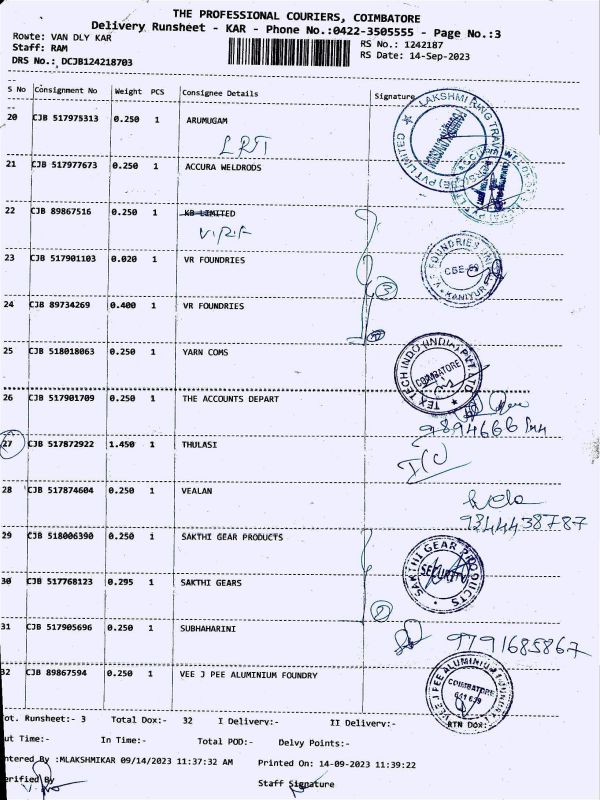 THE PROFESSIONAL COURIERS, COIMBATORE
Delivery Runsheet - KAR - Phone No.:0422-3505555 - Page No.:3
Rowte: VAN DLY KAR
RS No.: 1242187
Staff: RAM
RS Date: 14-Sep-2023
DRS No.: DCJB124218703
S No Consignment No Weight PCS Consignee Details Signature
20 CJB 517975313 0.250 1 ARUMUGAM
LRT
21 CJB 517977673 0.250 1 ACCURA WELDRODS
22 CJB 89867516 0.250 1 KB LIMITED
V.R.F
23 CJB 517901103 0.020 1 VR FOUNDRIES
3
24 CJB 89734269 0.400 1 VR FOUNDRIES
25 CJB 518018063 0.250 1 YARN COMS
TEX TECH INDO (INDIA) PVT. LTD
COIMBATORE
26 CJB 517901709 0.250 1 THE ACCOUNTS DEPART
27 CJB 517872922 1.450 1 THULASI
28 CJB 517874604 0.250 1 VEALAN
9344438787
29 CJB 518006390 0.250 1 SAKTHI GEAR PRODUCTS
SAKTHI GEAR PRODUCTS
SECURITY
30 CJB 517768123 0.295 1 SAKTHI GEARS
2
31 CJB 517905696 0.250 1 SUBHAHARINI
9791685867
32 CJB 89867594 0.250 1 VEE J PEE ALUMINIUM FOUNDRY
COIMBATORE
ot. Runsheet:- 3 Total Dox:- 32 I Delivery:- II Delivery:- RTN Dox:
ut Time:- In Time:- Total POD:- Delvy Points:-
ntered By :MLAKSHMIKAR 09/14/2023 11:37:32 AM Printed On: 14-09-2023 11:39:22
erified By Staff Signature